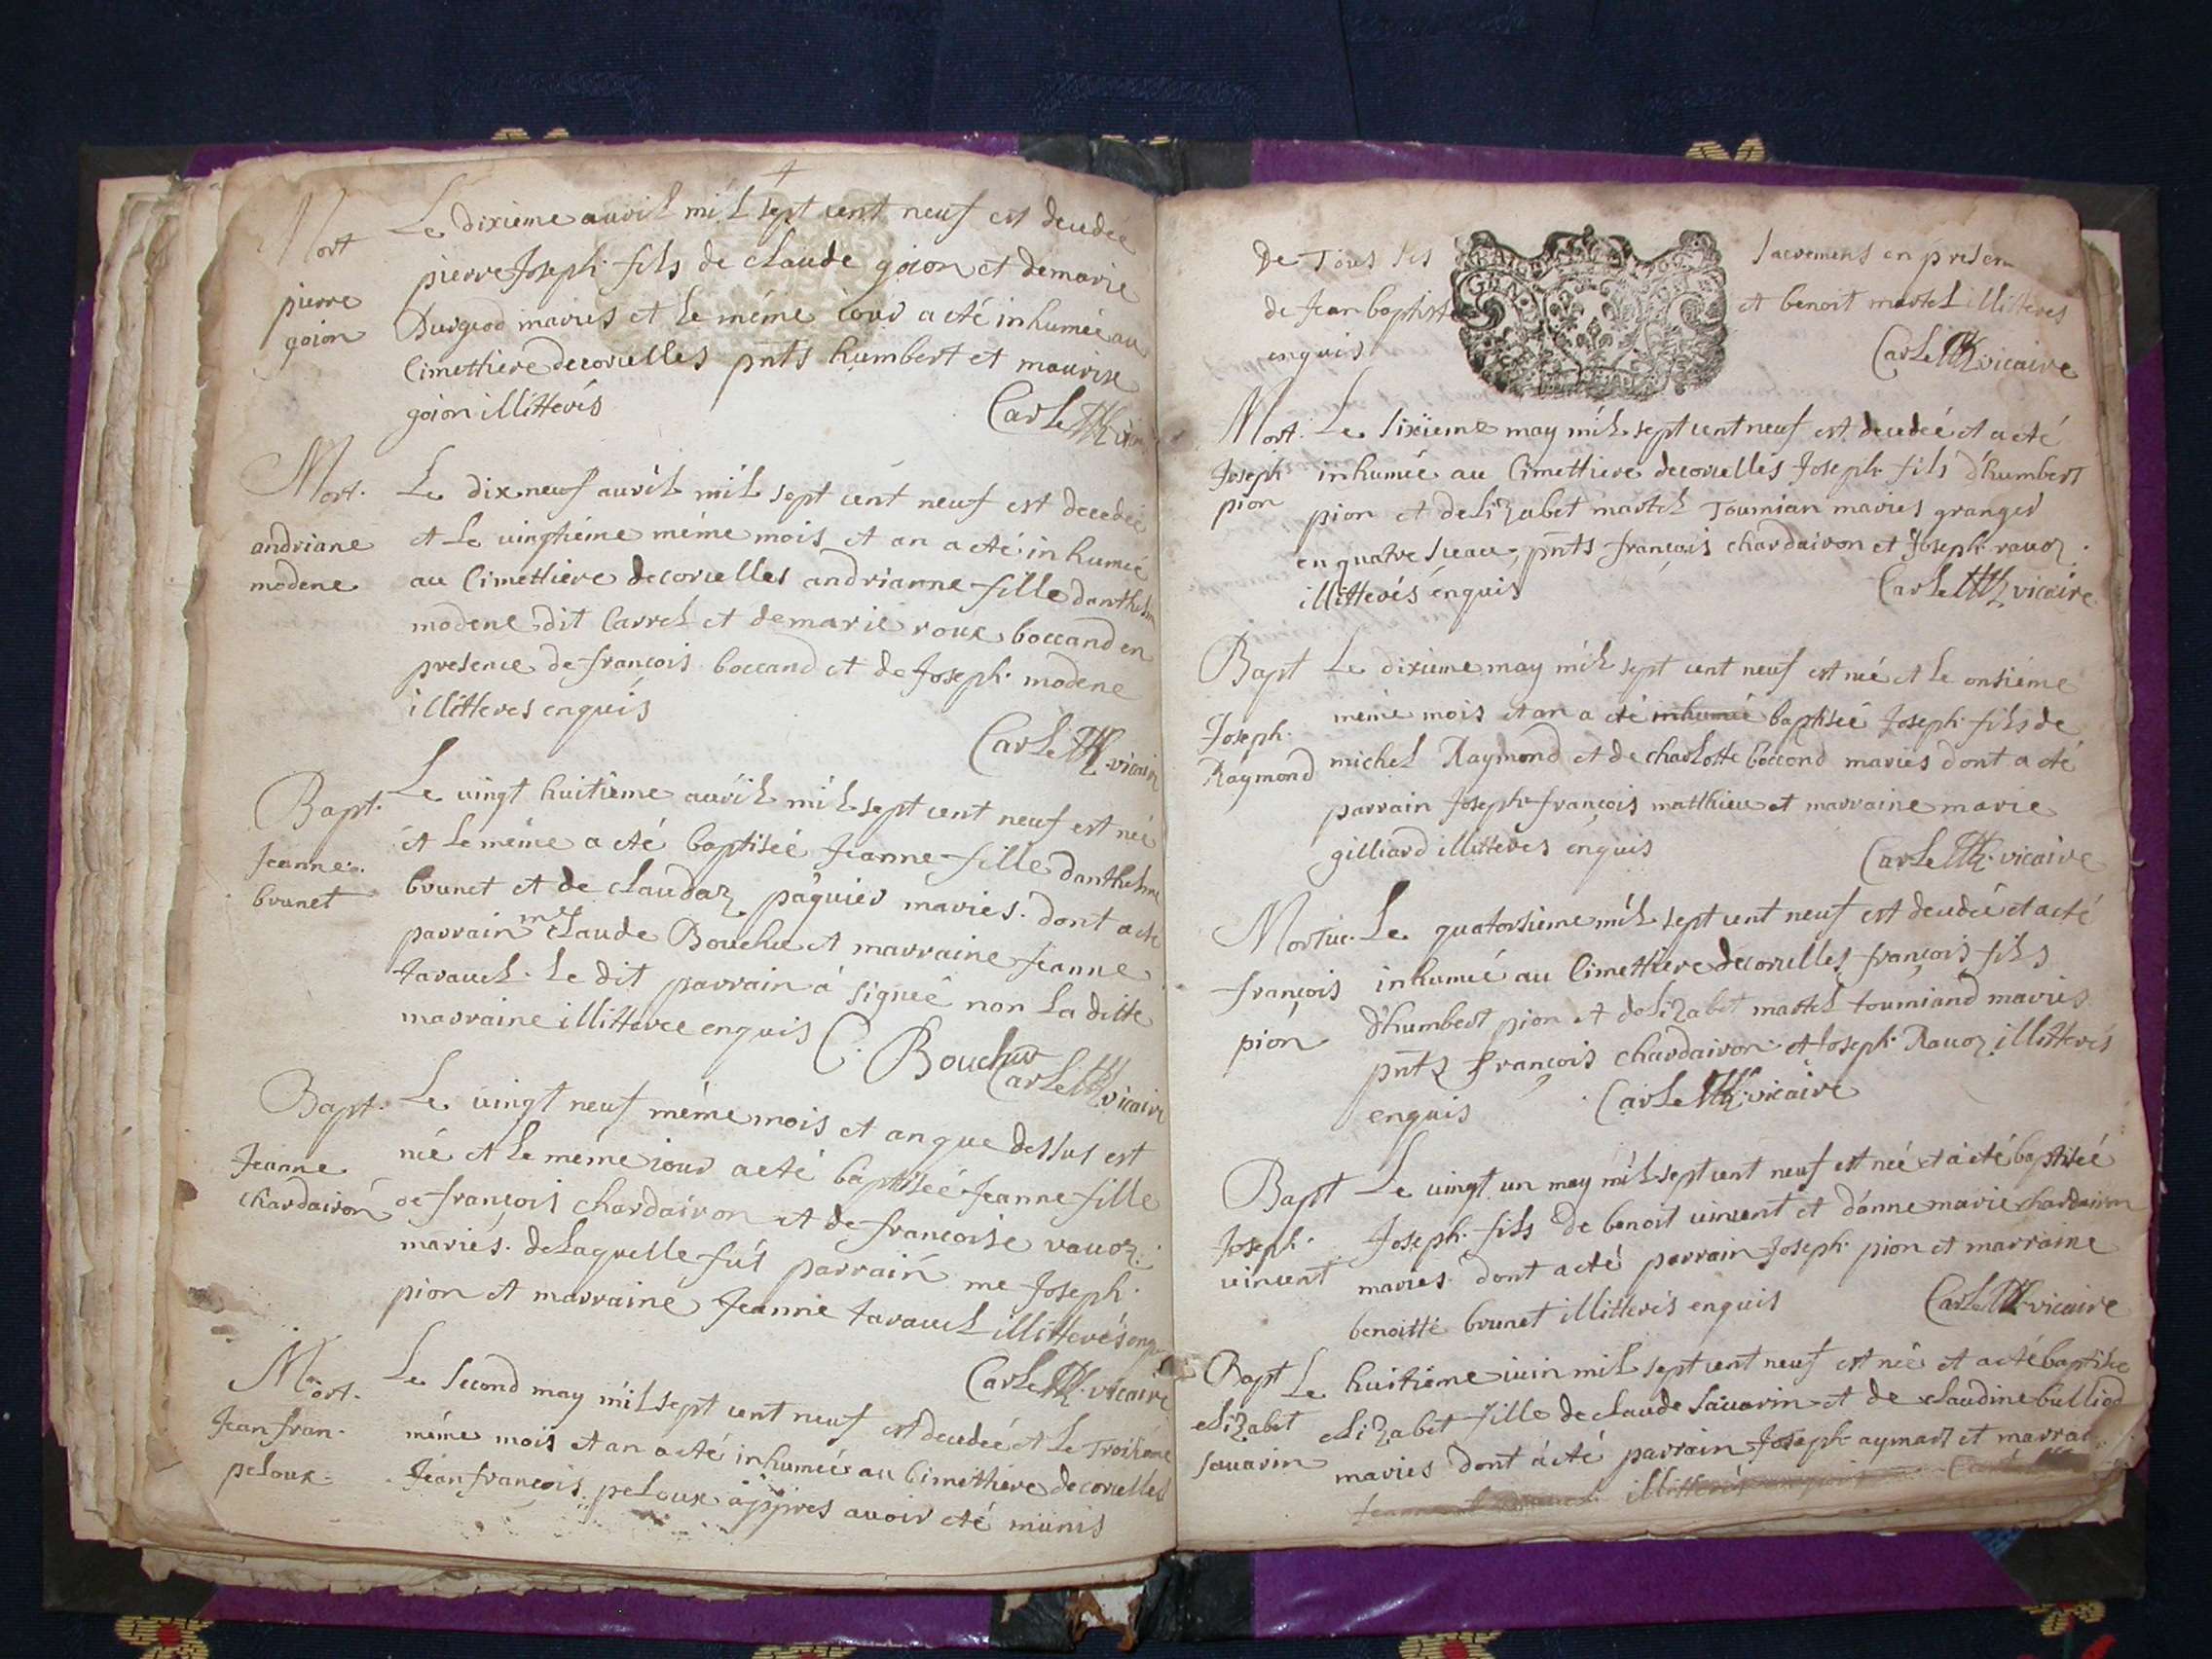 Mort
pierre
goion
Le dixieme auril mil sept cent neuf est decedée
pierre Joseph fils de claude goion et de marie
Durgeod mariés et le même iour a eté inhumée au
Cimettiere decorcelles pnts humbert et maurise
goion illitterés
Carle vicaire
Mort.
andriane
modene
Le dixneuf auril mil sept cent neuf est decedée
et le uingtiéme méme mois et an a eté inhumée
au Cimettiere decorcelles andrianne fille danthelme
modene dit Carrel et demarie roux boccand en
presence de françois boccand et de Joseph modene
illitteres enquis
Carle vicaire
Bapt.
Jeanne
brunet
Le uingt huitiéme auril mil sept cent neuf est née
et le méme a eté baptisée Jeanne fille danthelme
brunet et de claudaz pâquier mariés. dont a eté
parrain me claude Boucher et marraine Jeanne
tarauel. le dit parrain à signeé non la ditte
marraine illitteree enquis C. Boucher
Carle vicaire
Bapt.
Jeanne
chardairon
Le uingt neuf méme mois et an que dessus est
née et le méme iour a eté baptisée Jeanne fille
de françois chardairon et de francoise rauoz
mariés. delaquelle fut parrain me Joseph
pion et marraine Jeanne tarauel illitterés enquis
Carle vicaire
Mort.
Jean fran.
peloux.
Le second may mil sept cent neuf est decedée et le Troisiéme
méme mois et an a eté inhumée au Cimettiere decorcelles
Jean françois peloux appres auoir eté munis
De Tous les sacremens en presen
de Jean baptiste et benoit martel illitteres
enquis
Carle vicaire
Mort.
Joseph
pion
Le sixieme may mil sept cent neuf est decedeé et a eté
inhumée au Cimettiere decorcelles Joseph fils d'humbert
pion et delizabet martel Toumian mariés granger
en quatre sceau, pnts françois chardairon et Joseph rauoz
illitterés enquis
Carle vicaire
Bapt
Joseph
Raymond
Le dixieme may mil sept cent neuf est neé et le onsiéme
méme mois et an a eté inhumée baptiseé Joseph fils de
michel Raymond et de charlotte boccond mariés dont a eté
parrain Joseph françois matthieu et marraine marie
gilliard illitteres enquis
Carle vicaire
Mortue.
françois
pion
Le quatorsieme mil sept cent neuf est decedeé et a eté
inhumeé au Cimettiere decorcelles françois fils
d'humbert pion et delizabet martel toumiand mariés
pnts françois chardairon et Joseph Rauoz illitterés
enquis
Carle vicaire
Bapt
Joseph
uincent
Le uingt un may mil sept cent neuf est neé et a eté baptiseé
Joseph fils de benoit uincent et d'anne marie chardairon
mariés dont a eté parrain Joseph pion et marraine
benoitte brunet illitterés enquis
Carle vicaire
Bapt
elizabet
sauarin
Le huitiéme iuin mil sept cent neuf est neé et a eté baptisée
elizabet fille de claude sauarin et de claudine bulliod
mariés dont a eté parrain Joseph aymar et marrai
illitterés